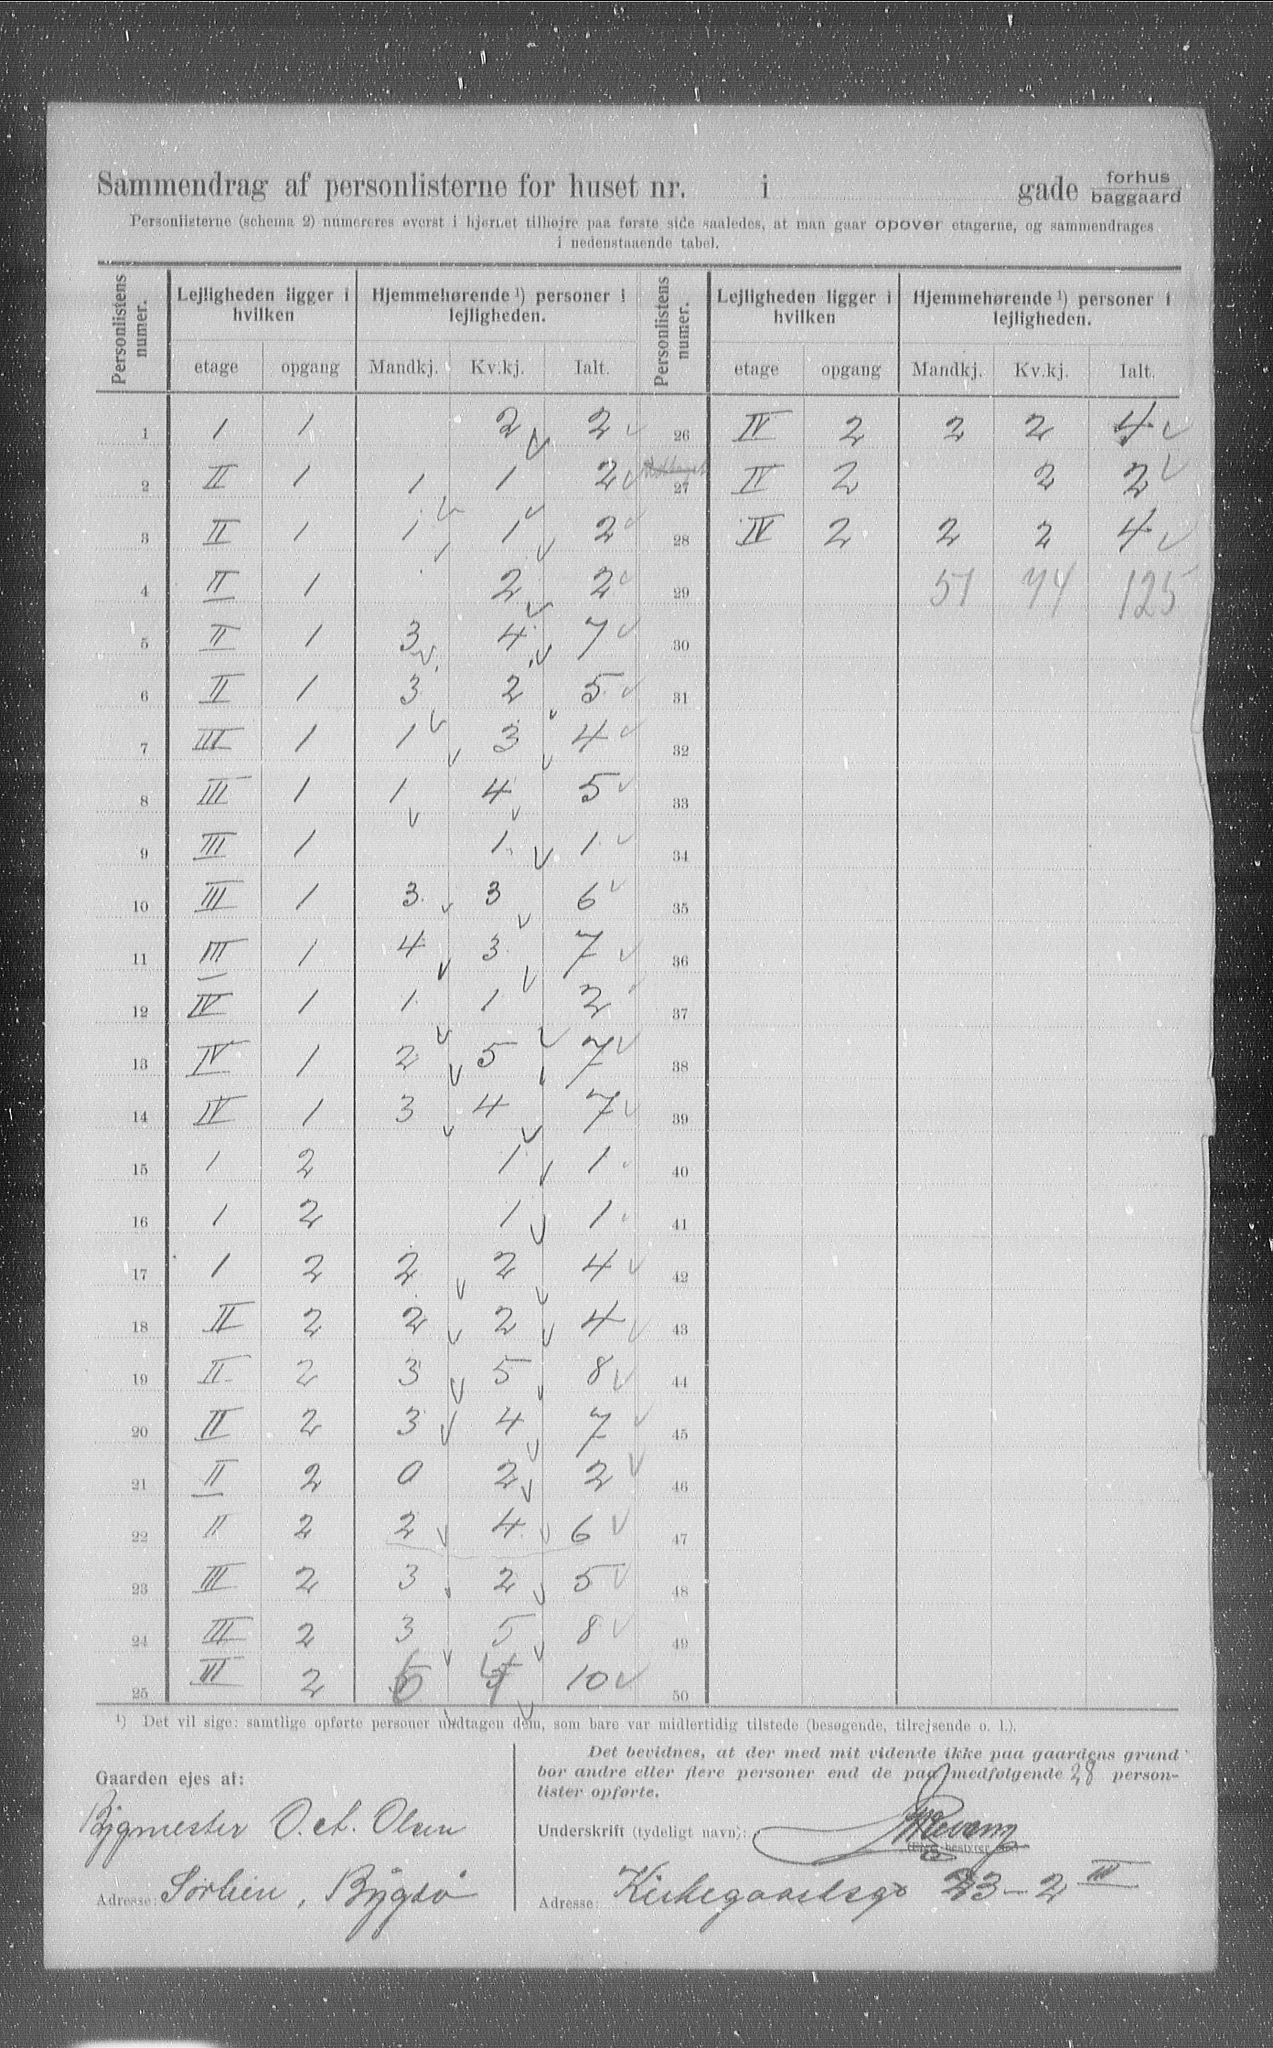 Sammendrag af personlisterne for huset nr. i gade forhus
baggaard
Personlisterne (schema 2) numereres øverst i hjørnet tilhøjre paa første side saaledes, at man gaar opover etagerne, og sammendrages
i nedenstaaende tabel.
Personlistens numer. Lejligheden ligger i hvilken Hjemmehørende ¹) personer i lejligheden. Personlistens numer. Lejligheden ligger i hvilken Hjemmehørende ¹) personer i lejligheden.
etage opgang Mandkj. Kv.kj. Ialt. etage opgang Mandkj. Kv.kj. Ialt.
1 1 1 2 2 26 IV 2 2 2 4
2 II 1 1 1 2 27 IV 2 2 2
3 II 1 1 1 2 28 IV 2 2 2 4
4 II 1 2 2 29 51 74 125
5 II 1 3 4 7 30
6 II 1 3 2 5 31
7 III 1 1 3 4 32
8 III 1 1 4 5 33
9 III 1 1 1 34
10 III 1 3 3 6 35
11 III 1 4 3 7 36
12 IV 1 1 1 2 37
13 IV 1 2 5 7 38
14 IV 1 3 4 7 39
15 1 2 1 1 40
16 1 2 1 1 41
17 1 2 2 2 4 42
18 II 2 2 2 4 43
19 II 2 3 5 8 44
20 II 2 3 4 7 45
21 II 2 0 2 2 46
22 II 2 2 4 6 47
23 III 2 3 2 5 48
24 III 2 3 5 8 49
25 III 2 10 50
¹) Det vil sige: samtlige opførte personer undtagen dem, som bare var midlertidig tilstede (besøgende, tilrejsende o. l.).
Gaarden ejes af:
Bygmester O. A. Olsen
Adresse: Sørlien, Bygdø
Det bevidnes, at der med mit vidende ikke paa gaardens grund
bor andre eller flere personer end de paa medfølgende 28 person-
lister opførte.
Underskrift (tydeligt navn):
Adresse: Kirkegaardsg 23 - 2 III